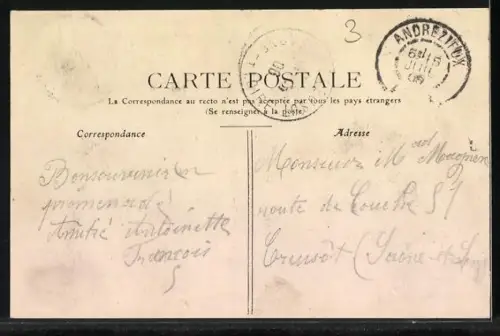 3
ANDREZIEUX
CARTE POSTALE
La Correspondance au recto n'est pas acceptée par tous les pays étrangers
(Se renseigner à la poste)
Correspondance
Adresse
Bon souvenir en
promenade
Amitié Antoinette
François
Monsieur M
route de Couche 57
Creusôt (Saône et